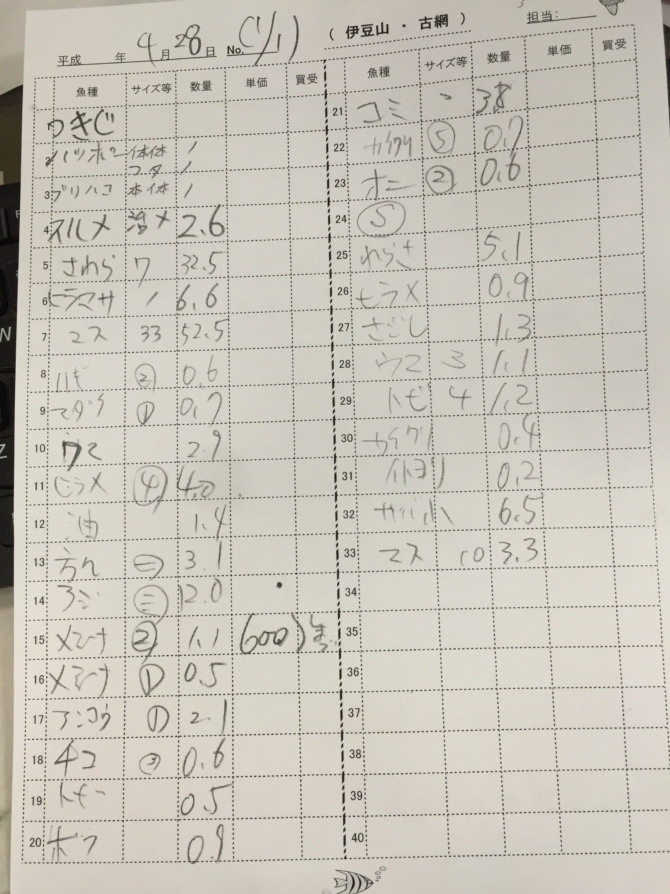 平成 年 4月28日 No.(1/1) (伊豆山・古網) 担当:
魚種 サイズ等 数量 単価 買受
うきじ
2 1
3 ブリハコ 本体 1
4 スルメ 活〆 2.6
5 さわら 7 32.5
6 ヒラマサ 1 6.6
7 マス 33 52.5
8 ハギ ② 0.6
9 マダラ ① 0.7
10 ウマ 2.9
11 ヒラメ ④ 4.0
12 油 1.4
13 ㊁ 3.1
14 アジ ㊂ 12.0
15 メジナ ② 1.1 (600)
16 メジナ ① 0.5
17 アンコウ ① 2.1
18 チコ ③ 0.6
19 0.5
20 ボラ 0.9
魚種 サイズ等 数量 単価 買受
21 コミ 38
22 カイワリ ⑤ 0.7
23 オニ ② 0.6
24 Ⓢ
25 わらさ 5.1
26 ヒラメ 0.9
27 さごし 1.3
28 ウマ 3 1.1
29 トビ 4 1.2
30 カイワリ 0.4
31 イトヨリ 0.2
32 サバ小 6.5
33 マス 10 3.3
34
35
36
37
38
39
40